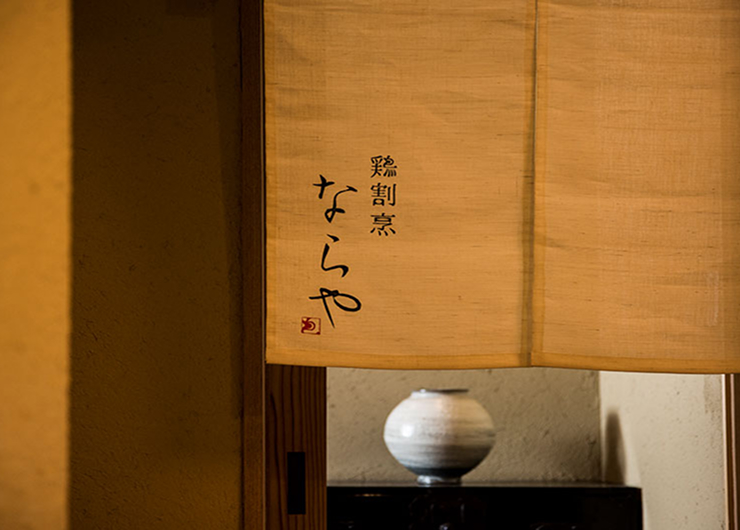 鶏割烹
ならや